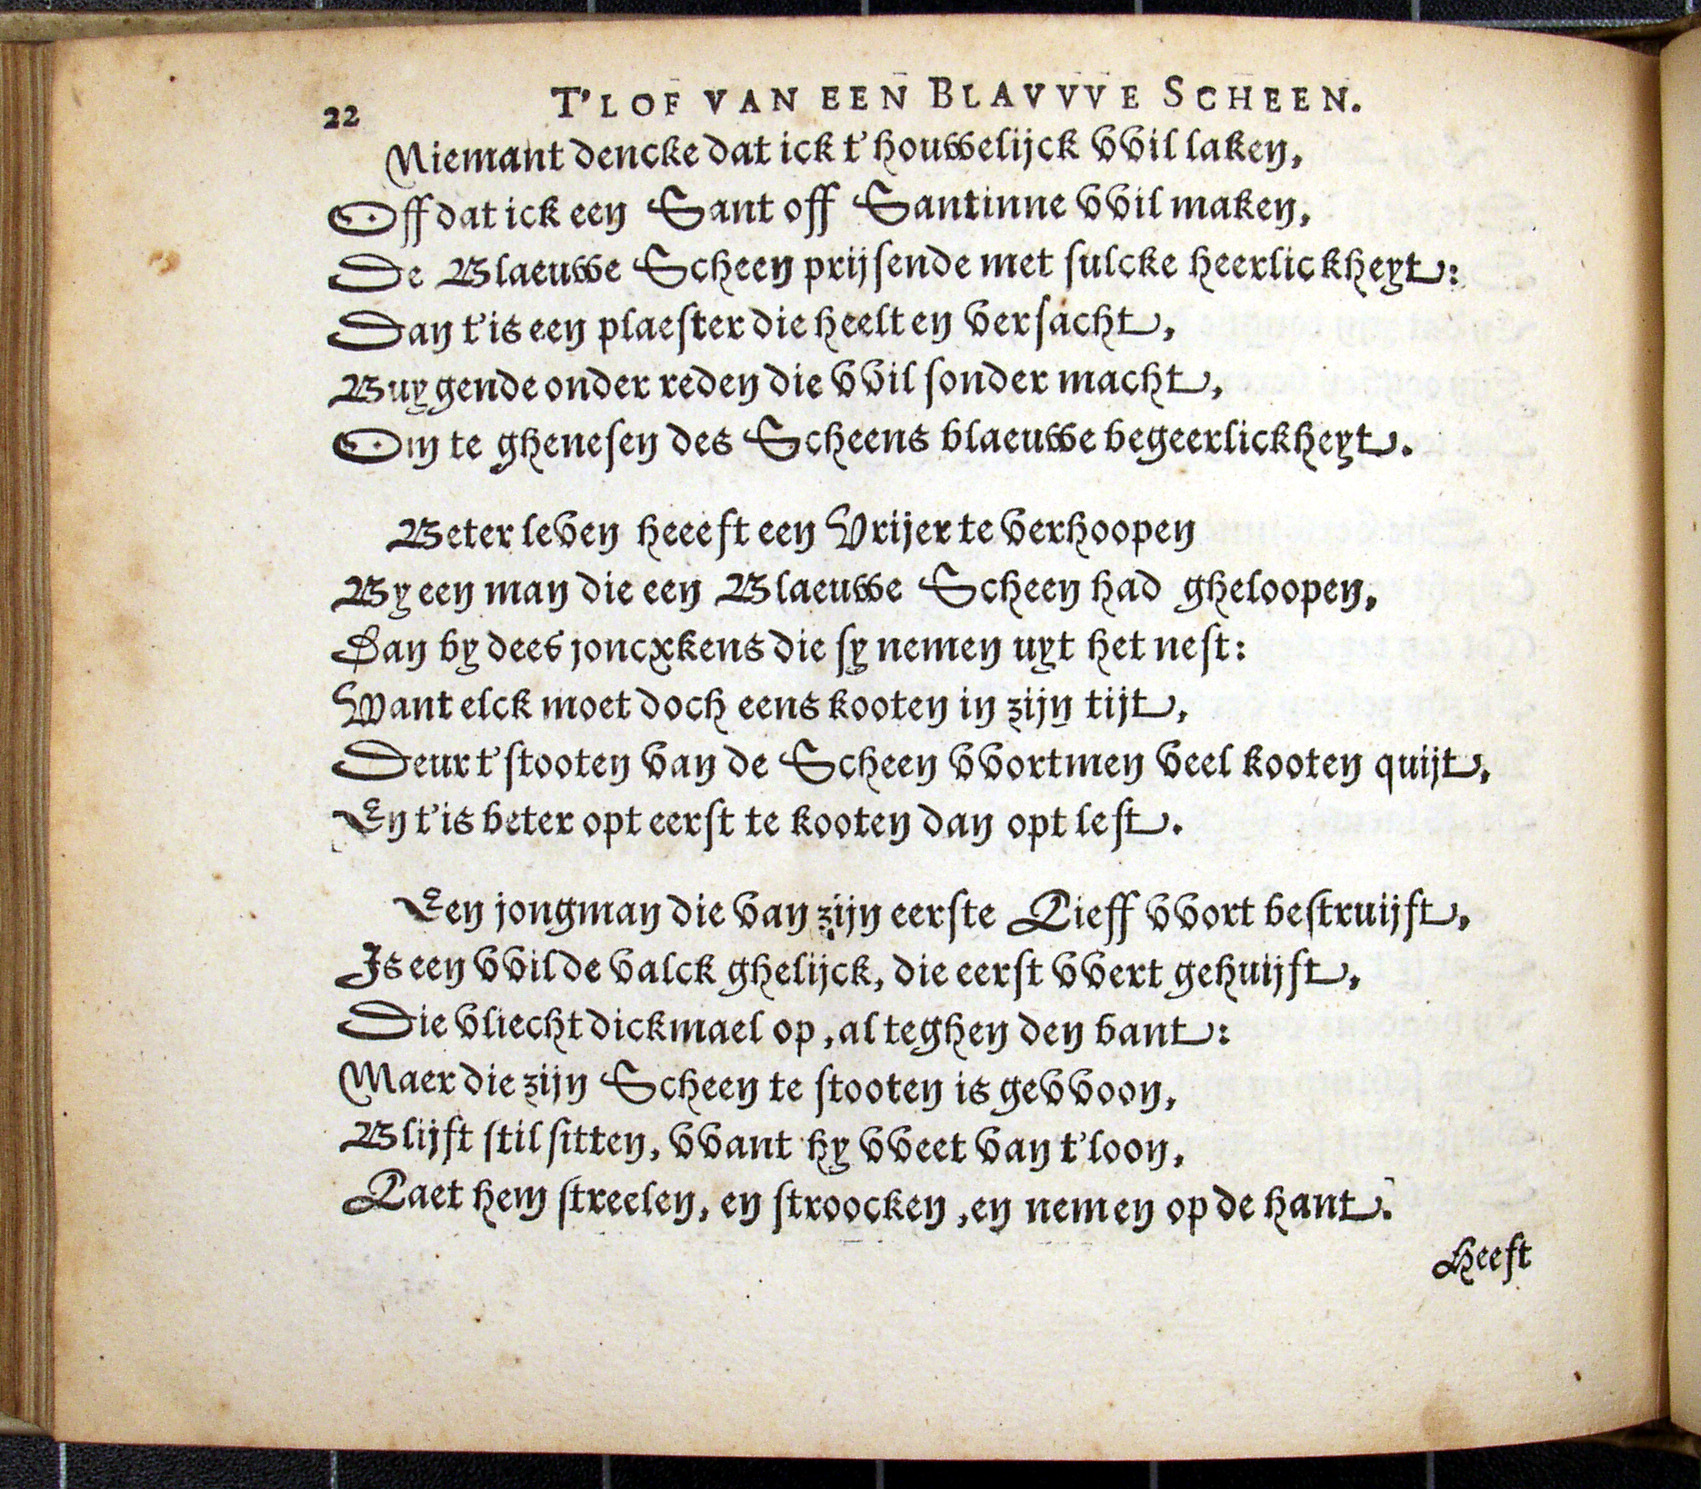 22 T'LOF VAN EEN BLAVVVE SCHEEN.
Niemant dencke dat ick t'houwelijck vvil laken,
Off dat ick een Sant off Santinne vvil maken,
De Blaeuwe Scheen prijsende met sulcke heerlickheyt:
Dan t'is een plaester die heelt en versacht,
Buygende onder reden die vvil sonder macht,
Om te ghenesen des Scheens blaeuwe begeerlickheyt.
Beter leven heeeft een Vrijer te verhoopen
By een man die een Blaeuwe Scheen had gheloopen,
Dan by dees joncxkens die sy nemen uyt het nest:
Want elck moet doch eens kooten in zijn tijt,
Deur t'stooten van de Scheen vvortmen veel kooten quijt,
En t'is beter opt eerst te kooten dan opt lest.
Een jongman die van zijn eerste Lieff vvort bestruijft,
Is een vvilde valck ghelijck, die eerst vvert gehuijft,
Die vliecht dickmael op, al teghen den bant:
Maer die zijn Scheen te stooten is gevvoon,
Blijft stil sitten, vvant hy vveet van t'loon,
Laet hem streelen, en stroocken, en nemen op de hant.
Heeft